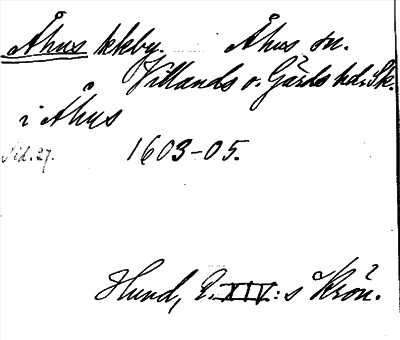 Åhus kkby. Åhus sn.
Villands o. Gärds hd. Sk.
i Åhus
Sid. 27. 1603-05.
Hund, E. XIV:s Krön.